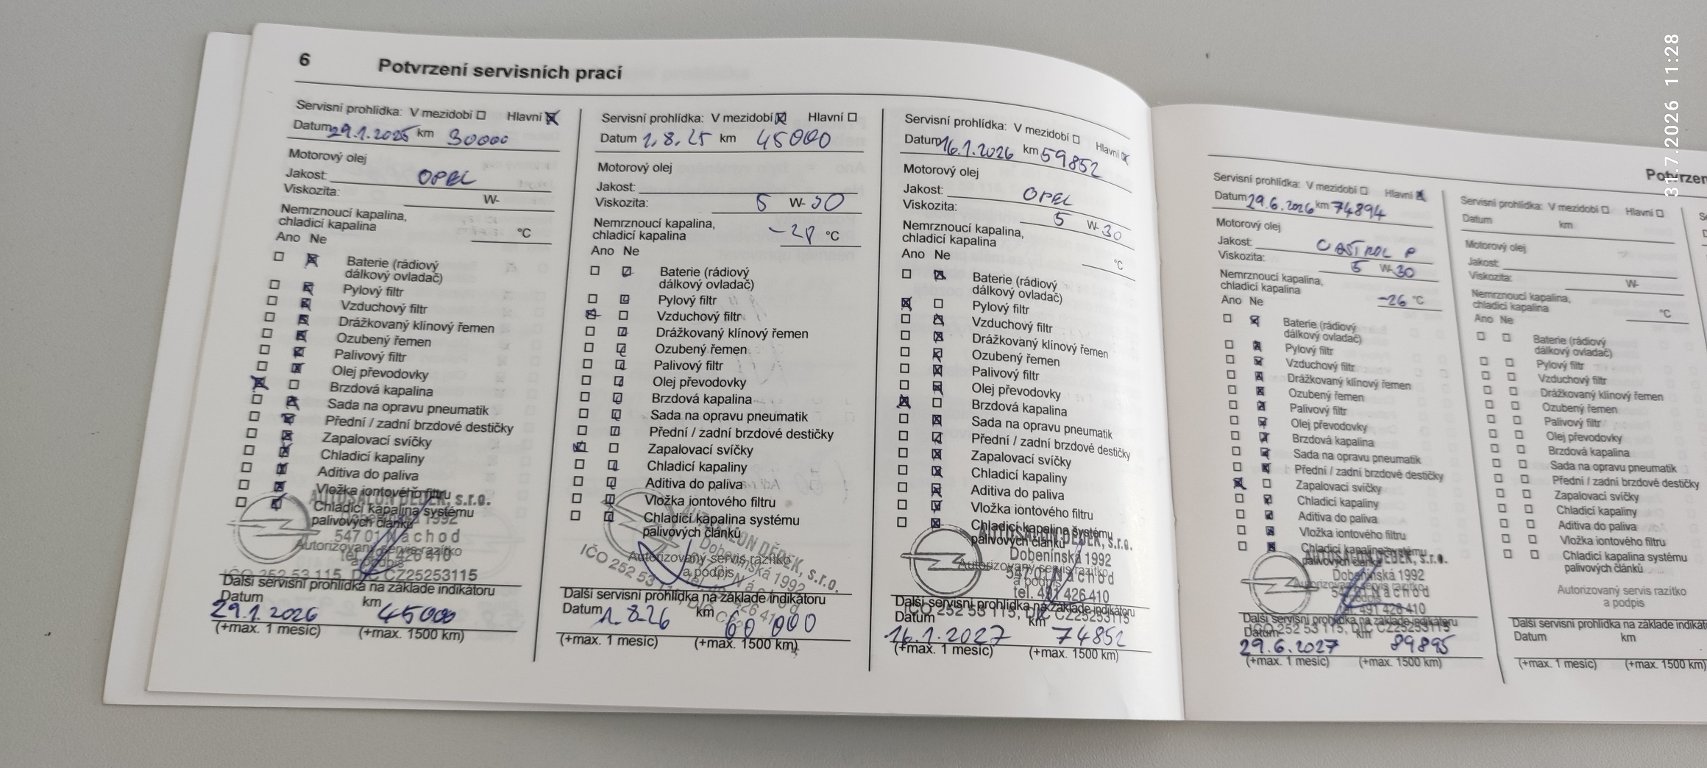 6 Potvrzení servisních prací
Servisní prohlídka: V mezidobí Hlavní
Datum 29.1.2025 km 30000
Motorový olej
Jakost: OPEL
Viskozita: W-
Nemrznoucí kapalina,
chladicí kapalina °C
Ano Ne
Baterie (rádiový
dálkový ovladač)
Pylový filtr
Vzduchový filtr
Drážkovaný klínový řemen
Ozubený řemen
Palivový filtr
Olej převodovky
Brzdová kapalina
Sada na opravu pneumatik
Přední / zadní brzdové destičky
Zapalovací svíčky
Chladicí kapaliny
Aditiva do paliva
Vložka iontového filtru
Chladicí kapalina systému
palivových článků
AUTOSALON DĚDEK, s.r.o.
Dobenínská 1992
547 01 Náchod
Autorizovaný servis razítko
a podpis
tel. 491 426 410
IČO 252 53 115, DIČ CZ25253115
Další servisní prohlídka na základě indikátoru
Datum km
29.1.2026 45000
(+max. 1 měsíc) (+max. 1500 km)
Servisní prohlídka: V mezidobí Hlavní
Datum 1.8.25 km 45000
Motorový olej
Jakost:
Viskozita: 5 W- 30
Nemrznoucí kapalina,
chladicí kapalina °C
Ano Ne
Baterie (rádiový
dálkový ovladač)
Pylový filtr
Vzduchový filtr
Drážkovaný klínový řemen
Ozubený řemen
Palivový filtr
Olej převodovky
Brzdová kapalina
Sada na opravu pneumatik
Přední / zadní brzdové destičky
Zapalovací svíčky
Chladicí kapaliny
Aditiva do paliva
Vložka iontového filtru
Chladicí kapalina systému
palivových článků
AUTOSALON DĚDEK, s.r.o.
Dobenínská 1992
547 01 Náchod
Autorizovaný servis razítko
a podpis
IČO 252 53
Další servisní prohlídka na základě indikátoru
Datum km
1.8.26 60 000
(+max. 1 měsíc) (+max. 1500 km)
Servisní prohlídka: V mezidobí Hlavní
Datum 16.1.2026 km 59852
Motorový olej
Jakost: OPEL
Viskozita: 5 W- 30
Nemrznoucí kapalina,
chladicí kapalina °C
Ano Ne
Baterie (rádiový
dálkový ovladač)
Pylový filtr
Vzduchový filtr
Drážkovaný klínový řemen
Ozubený řemen
Palivový filtr
Olej převodovky
Brzdová kapalina
Sada na opravu pneumatik
Přední / zadní brzdové destičky
Zapalovací svíčky
Chladicí kapaliny
Aditiva do paliva
Vložka iontového filtru
Chladicí kapalina systému
palivových článků
AUTOSALON DĚDEK, s.r.o.
Dobenínská 1992
Autorizovaný servis razítko
547 01 Náchod
a podpis
tel. 491 426 410
Další servisní prohlídka na základě indikátoru
IČO 252 53 115, DIČ CZ25253115
Datum km
16.1.2027 74852
(+max. 1 měsíc) (+max. 1500 km)
Potvrzen
Servisní prohlídka: V mezidobí Hlavní
Datum 29.6.2026 km 74894
Motorový olej
Jakost: CASTROL P
Viskozita: 5 W- 30
Nemrznoucí kapalina,
chladicí kapalina -26 °C
Ano Ne
Baterie (rádiový
dálkový ovladač)
Pylový filtr
Vzduchový filtr
Drážkovaný klínový řemen
Ozubený řemen
Palivový filtr
Olej převodovky
Brzdová kapalina
Sada na opravu pneumatik
Přední / zadní brzdové destičky
Zapalovací svíčky
Chladicí kapaliny
Aditiva do paliva
Vložka iontového filtru
Chladicí kapalina systému
palivových článků
AUTOSALON DĚDEK, s.r.o.
Dobenínská 1992
Autorizovaný servis razítko
547 01 Náchod
a podpis
tel. 491 426 410
Další servisní prohlídka na základě indikátoru
IČO 252 53 115, DIČ CZ25253115
Datum km
29.6.2027 89895
(+max. 1 měsíc) (+max. 1500 km)
Servisní prohlídka: V mezidobí Hlavní
Datum km:
Motorový olej
Jakost:
Viskozita: W-
Nemrznoucí kapalina,
chladicí kapalina °C
Ano Ne
Baterie (rádiový
dálkový ovladač)
Pylový filtr
Vzduchový filtr
Drážkovaný klínový řemen
Ozubený řemen
Palivový filtr
Olej převodovky
Brzdová kapalina
Sada na opravu pneumatik
Přední / zadní brzdové destičky
Zapalovací svíčky
Chladicí kapaliny
Aditiva do paliva
Vložka iontového filtru
Chladicí kapalina systému
palivových článků
Autorizovaný servis razítko
a podpis
Další servisní prohlídka na základě indikátoru
Datum km
(+max. 1 měsíc) (+max. 1500 km)
31.7.2026 11:28